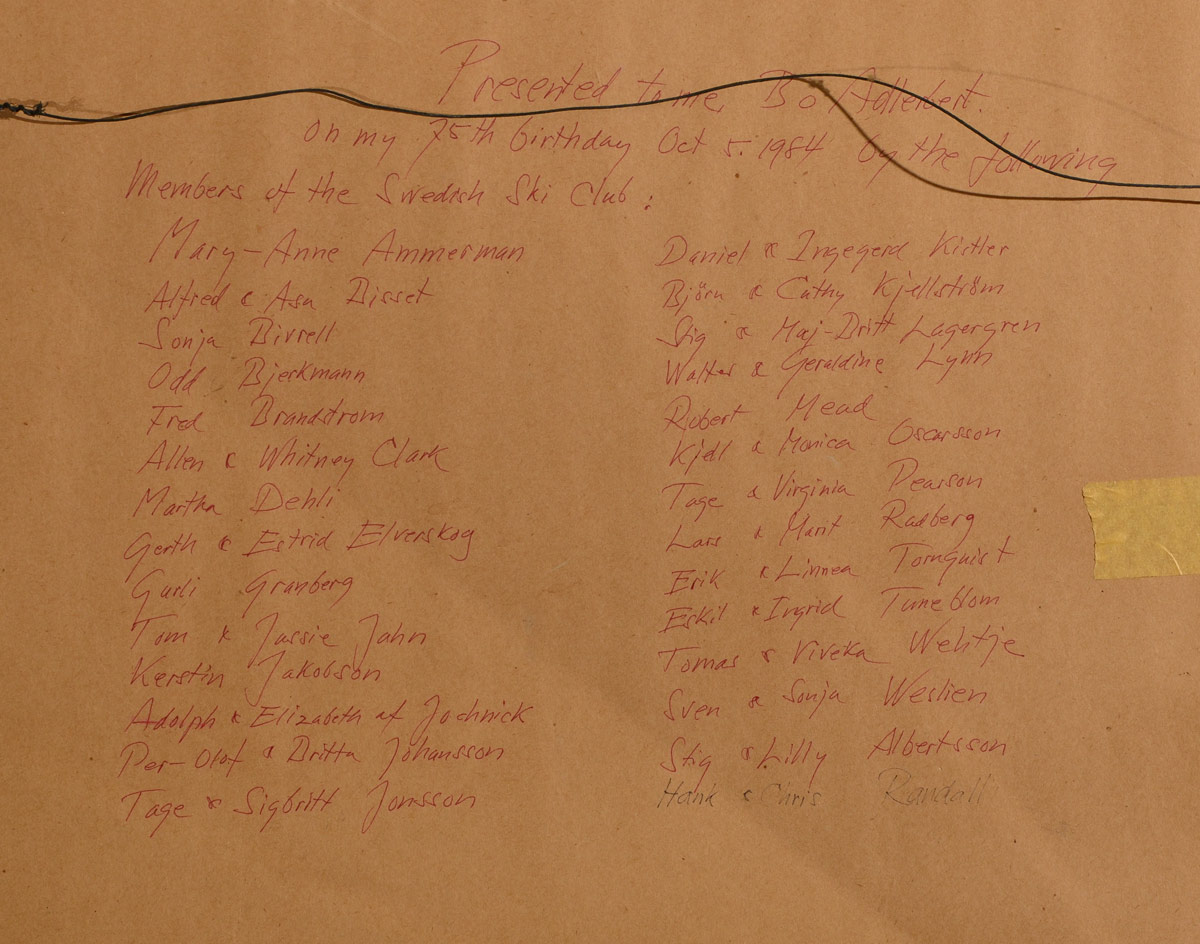 Presented to me, Bo Adlerbert.
on my 75th birthday Oct 5. 1984 by the following
Members of the Swedish Ski Club:
Mary-Anne Ammerman
Alfred & Asa Bisset
Sonja Birrell
Odd Bjerkmann
Fred Brandstrom
Allen & Whitney Clark
Martha Dehli
Gerth & Estrid Elverskog
Gurli Granberg
Tom & Jassie Jahn
Kerstin Jakobson
Adolph & Elizabeth af Jochnick
Per-Olof & Britta Johansson
Tage & Sigbritt Jonsson
Daniel & Ingegerd Kistler
Björn & Cathy Kjellström
Stig & Maj-Britt Lagergren
Walter & Geraldine Lynn
Robert Mead
Kjell & Monica Oscarsson
Tage & Virginia Pearson
Lars & Marit Radberg
Erik & Linnea Tornquist
Eskil & Ingrid Tuneblom
Tomas & Viveka Wehtje
Sven & Sonja Weslien
Stig & Lilly Albertsson
Hank & Chris Randall